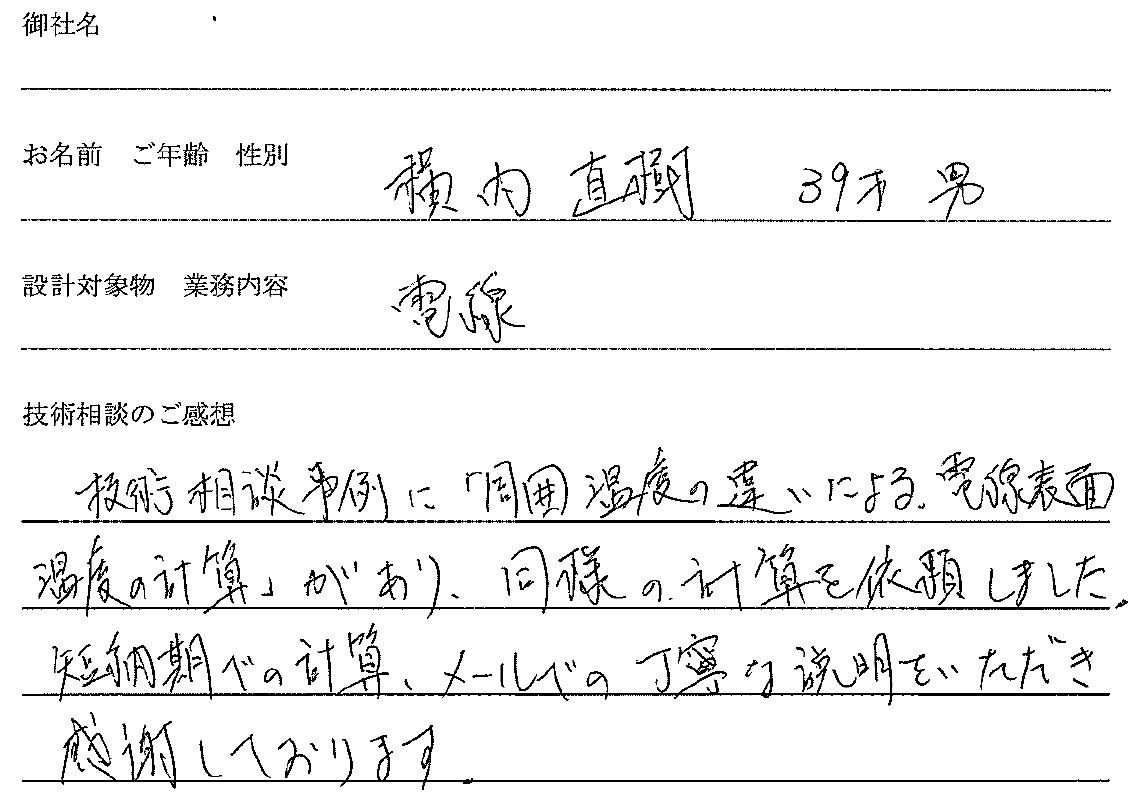 御社名
お名前 ご年齢 性別 横内 直樹 39才 男
設計対象物 業務内容 電線
技術相談のご感想
技術相談事例に「周囲温度の違いによる、電線表面
温度の計算」があり、同様の計算を依頼しました。
短納期での計算、メールでの丁寧な説明をいただき
感謝しております。